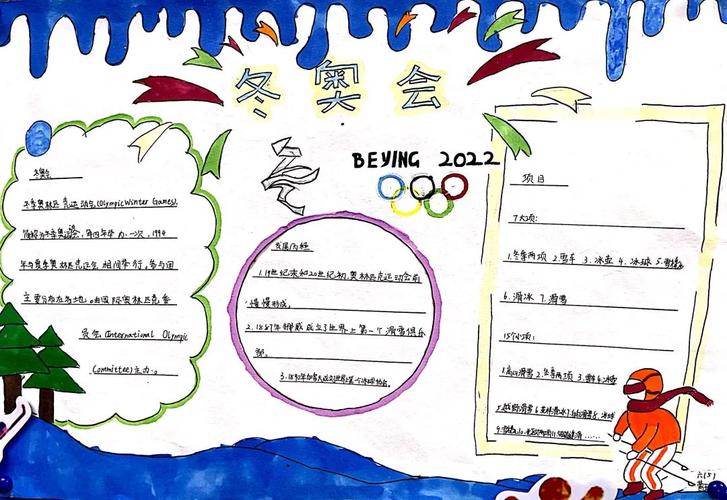 冬奥会
BEIJING 2022
冬奥会
冬季奥林匹克运动会(Olympic Winter Games),
简称为冬季奥运会,每四年举办一次,1994
年与夏季奥林匹克运动会相间举行,参与国
主要分布在各地。由国际奥林匹克委
员会(International Olympic
Committee)主办。
发展历程
1.19世纪末和20世纪初,奥林匹克运动会前
慢慢形成。
2.1887年挪威成立了世界上第一个滑雪俱乐
部。
3.1890年加拿大成立世界上第一个冰球协会。
项目
7大项:
1.冬季两项 2.雪车 3.冰壶 4.冰球 5.雪橇
6.滑冰 7.滑雪
15个小项:
1.高山滑雪 2.冬季两项 3. 4.冰壶
5.越野滑雪 6.花样滑冰 7.自由式滑雪 8.冰球
六(5)